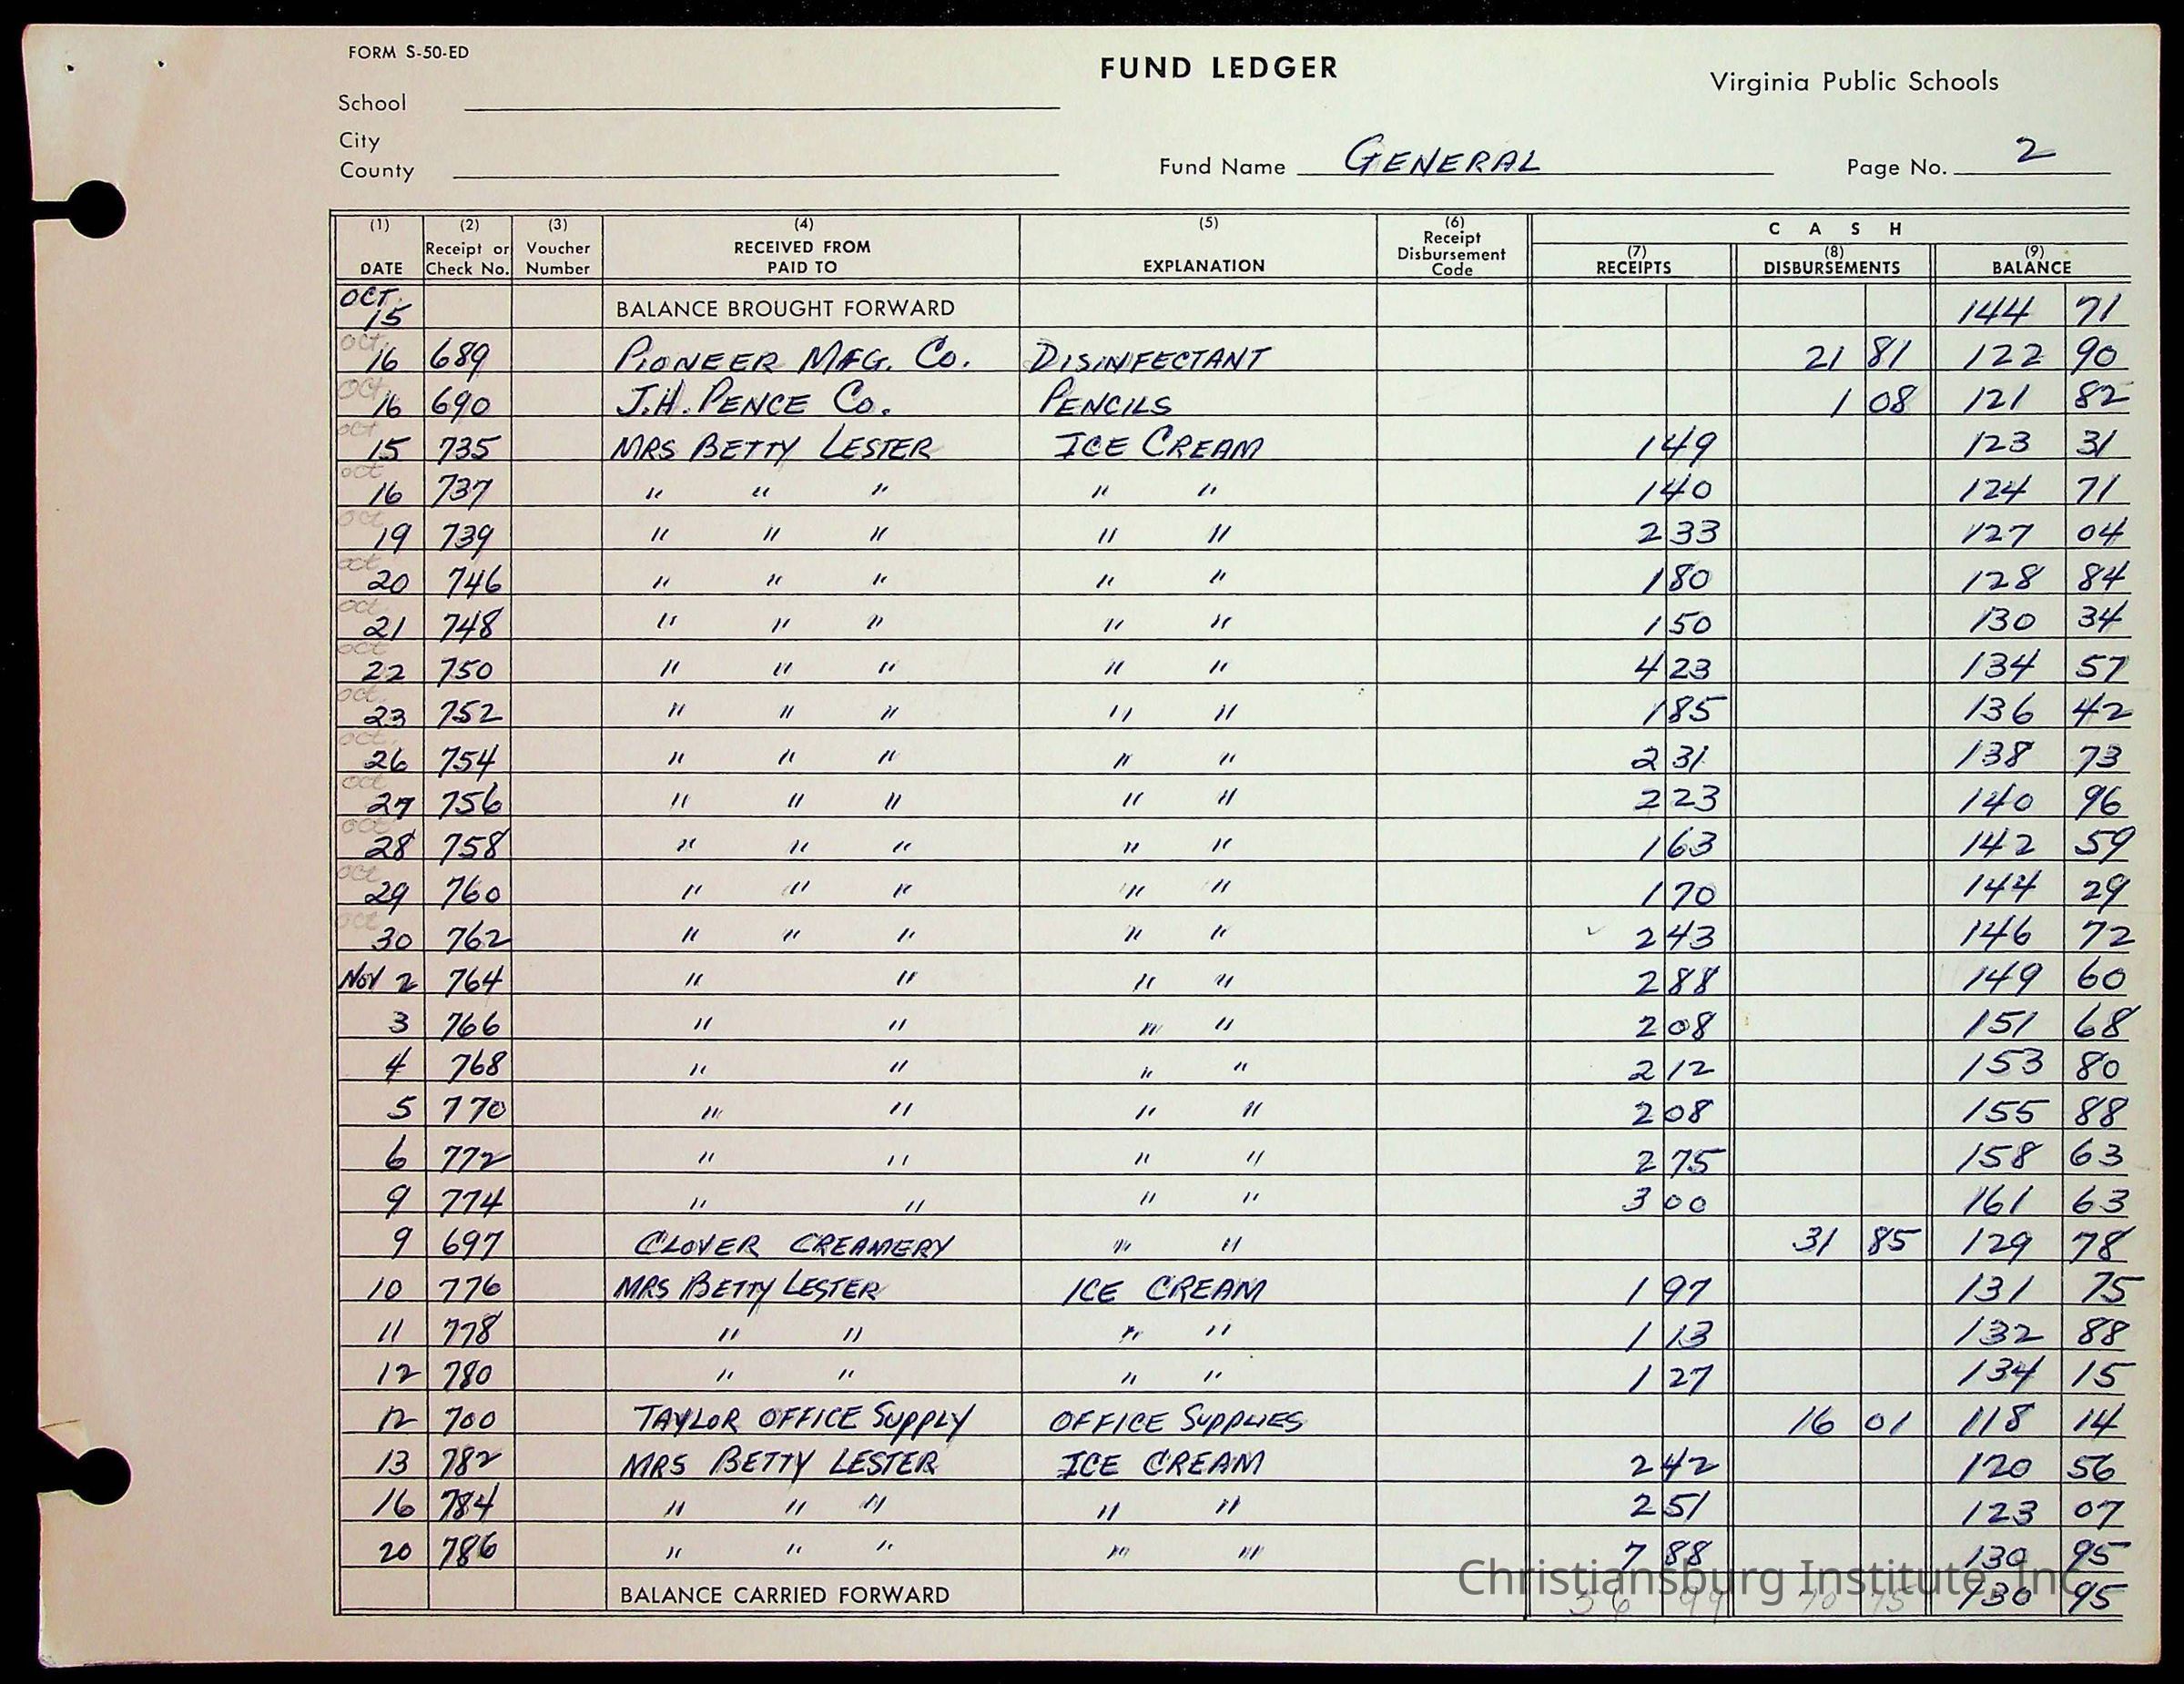 FORM S-50-ED
FUND LEDGER
Virginia Public Schools
School
City
County
Fund Name GENERAL
Page No. 2
(1) DATE (2) Receipt or Check No. (3) Voucher Number (4) RECEIVED FROM PAID TO (5) EXPLANATION (6) Receipt Disbursement Code CASH (7) RECEIPTS (8) DISBURSEMENTS (9) BALANCE
OCT. 15 BALANCE BROUGHT FORWARD 144 71
oct. 16 689 PIONEER MFG. CO. DISINFECTANT 21 81 122 90
oct. 16 690 J.H. PENCE CO. PENCILS 1 08 121 82
oct 15 735 MRS BETTY LESTER ICE CREAM 1 49 123 31
oct 16 737 " " " " " 1 40 124 71
oct 19 739 " " " " " 2 33 127 04
oct 20 746 " " " " " 1 80 128 84
oct 21 748 " " " " " 1 50 130 34
oct 22 750 " " " " " 4 23 134 57
oct. 23 752 " " " " " 1 85 136 42
oct. 26 754 " " " " " 2 31 138 73
oct 27 756 " " " " " 2 23 140 96
oct 28 758 " " " " " 1 63 142 59
oct 29 760 " " " " " 1 70 144 29
oct 30 762 " " " " " ✓ 2 43 146 72
NOV 2 764 " " " " 2 88 149 60
3 766 " " " " 2 08 151 68
4 768 " " " " 2 12 153 80
5 770 " " " " 2 08 155 88
6 772 " " " " 2 75 158 63
9 774 " " " " 3 00 161 63
9 697 CLOVER CREAMERY " " 31 85 129 78
10 776 MRS BETTY LESTER ICE CREAM 1 97 131 75
11 778 " " " " 1 13 132 88
12 780 " " " " 1 27 134 15
12 700 TAYLOR OFFICE SUPPLY OFFICE SUPPLIES 16 01 118 14
13 782 MRS BETTY LESTER ICE CREAM 2 42 120 56
16 784 " " " " " 2 51 123 07
20 786 " " " " " 7 88 130 95
BALANCE CARRIED FORWARD 56 99 70 75 130 95
Christiansburg Institute, Inc